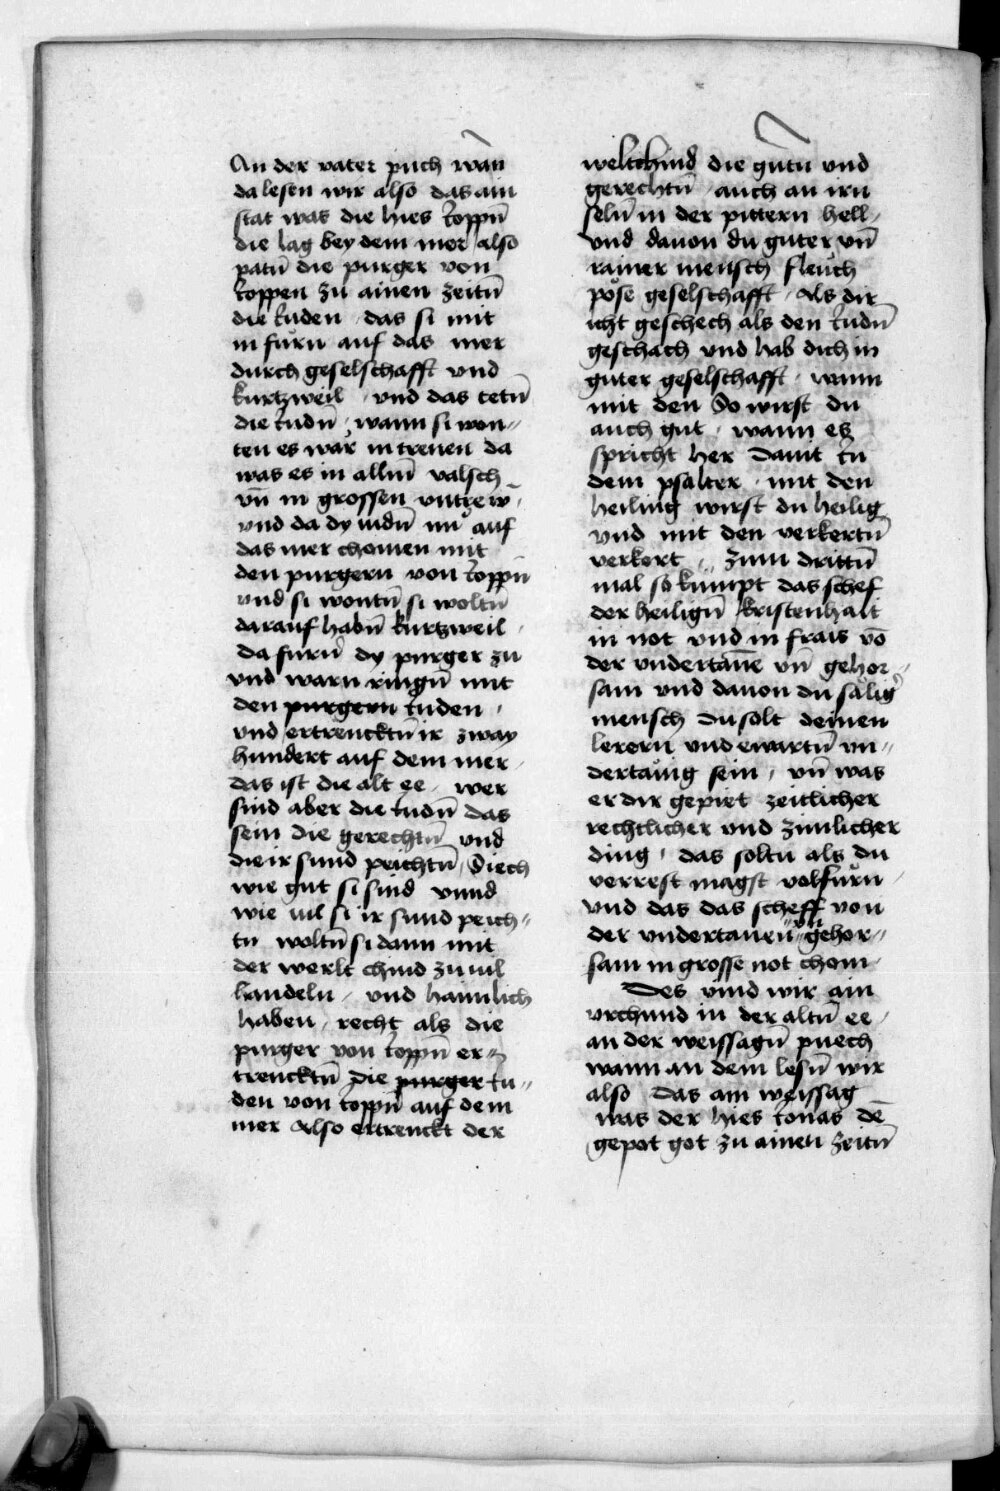 An der vater puch wan̄
da lesen wir also das ain
stat was die hies Joppn̄
die lag bey dem mer also
patn̄ die purger von
Joppen zu ainen zeitn̄
die Juden das si mit
in furn auf das mer
durch geselschafft vnd
kurtzweil vnd das tetn̄
die Judn̄ wann si won//
ten es wär in trewen da
was es in alln̄ valsch
vn̄ in grossen vntrew
vnd da dy iudn̄ nu auf
das mer chomen mit
den purgern von Joppn̄
vnd si wontn̄ si woltn̄
darauf habn̄ kurtzweil
da furn̄ dy purger zu
vnd warn ringn̄ mit
den purgern Juden
vnd ertrencktn̄ ir zway
hundert auf dem mer
das ist die alt ee wer
sind aber die Judn̄ das
sein die gerechtn̄ vnd
die ir sund peichtn̄ Siech
wie gut si sind vnnd
wie uil si ir sund peich//
tn woltn̄ si dann mit
der werlt chind zu uil
handeln vnd haimlich
haben recht als die
purger von Joppn̄ er//
trencktn̄ die purger Ju//
den von Joppn̄ auf dem
mer Also ertrenckt der
weltchind die gutn vnd
gerechtn̄ auch an irn
seln̄ in der pittern hell
vnd dauon du guter vn̄
rainer mensch fleuch
pöse geselschafft Als dir
icht geschech als den Judn̄
geschach vnd hab dich in
guter geselschafft wann
mit den So wirst du
auch gut wann es
spricht her Dauit Jn
dem psalter mit den
heiling wirst du heilig
vnd mit den verkertn̄
verkert zum drittn̄
mal so kumpt das schef
der heilign̄ kristenhait
in not vnd in frais vō
der vndertanē vn̄ gehor//
sam vnd dauon du sälig
mensch du solt deinen
lerern vnd ewartn̄ vn//
dertänig sein vn̄ was
er dir gepiet zeitlicher
rechtlicher vnd zimlicher
ding das soltu als du
verrest magst volfürn
vnd das das scheff von
der vndertanen vn̄ gehor//
sam in grosse not chom
Des vind wir ain
vrchund in der altn̄ ee
an der weissagn̄ puech
wann an dem lesn̄ wir
also Das ain weissag
was der hies Jonas dē
gepot got zu ainen zeitn̄